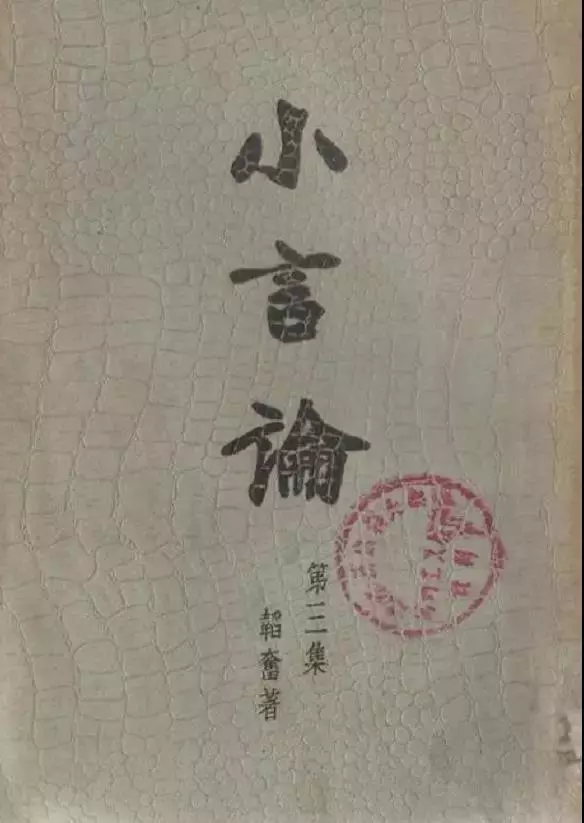 小言論
第三集
韜奮著